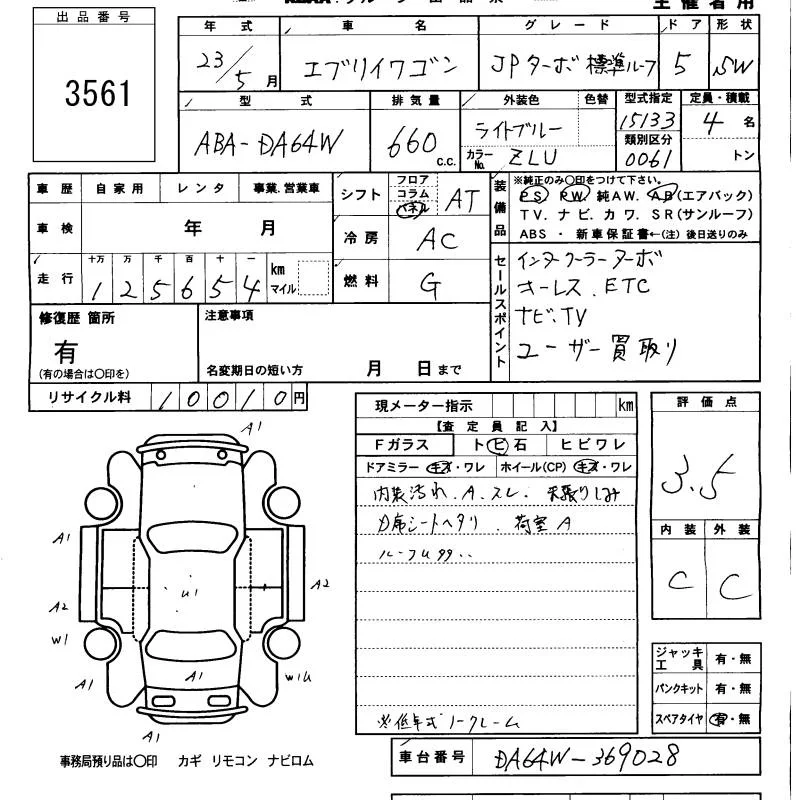 主催者用
出品番号
3561
年式 車名 グレード ドア 形状
23/5月 エブリイワゴン JPターボ 標準ルーフ 5 SW
型式 排気量 外装色 色替 型式指定 定員・積載
ABA-DA64W 660 c.c. ライトブルー 15133 4名
カラーNo. ZLU 類別区分 0061 トン
車歴 自家用 レンタ 事業.営業車
車検 年 月
走行 十万 万 千 百 十 一
125654 km マイル
シフト フロア コラム パネル AT
冷房 AC
燃料 G
装備品
※純正のみ〇印をつけて下さい。
PS PW 純AW. AB(エアバック)
TV. ナビ. カワ. SR(サンルーフ)
ABS ・ 新車保証書←(注) 後日送りのみ
セールスポイント
インタークーラーターボ
キーレス.ETC
ナビ.TV
ユーザー買取り
修復歴 箇所
有
(有の場合は〇印を)
注意事項
名変期日の短い方 月 日まで
リサイクル料 10010円
現メーター指示 km
【査定員記入】
Fガラス トビ石 ヒビワレ
ドアミラー キズ・ワレ ホイール(CP) キズ・ワレ
内装汚れ.A.スレ. 天張りしみ
D席シートヘタリ. 荷室A
ルーフU
※低年式ノークレーム
評価点
3.5
内装 外装
C C
ジャッキ工具 有・無
パンクキット 有・無
スペアタイヤ 有・無
A1
A1
A2
W1
A1
A1
U1
A1
A2
W1U
事務局預り品は〇印 カギ リモコン ナビロム
車台番号 DA64W-369028